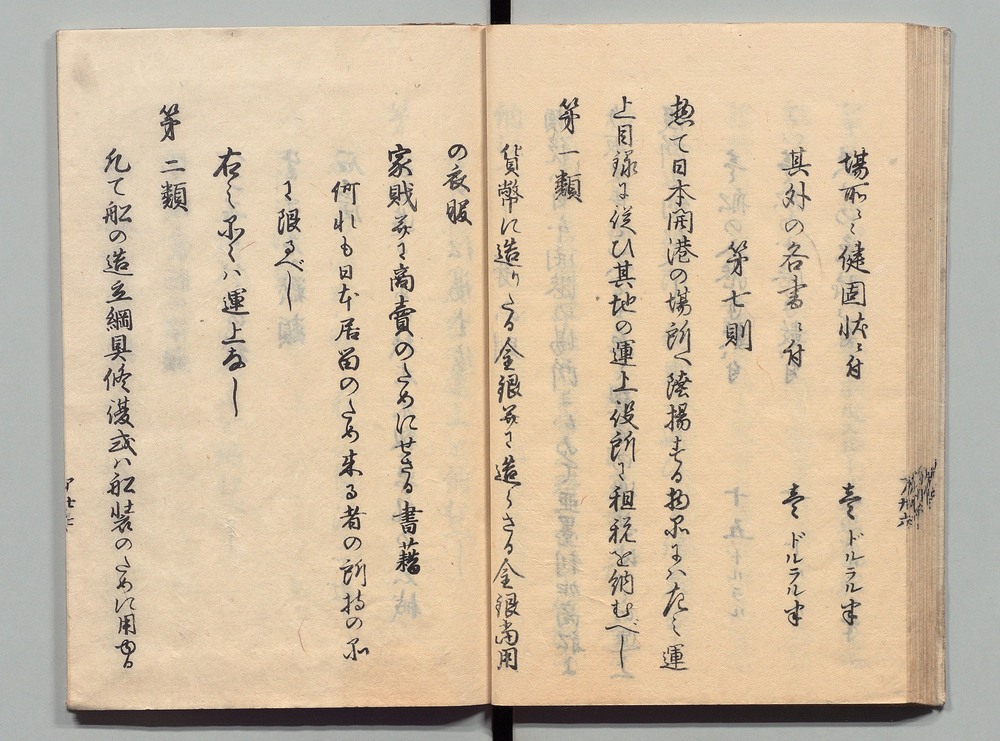 場所之健固状ニ付　壱ドルラル半
其外の各書ニ付　壱ドルラル半
第七則
惣て日本開港の場所へ陸揚する物品にハ左之運
上目録に従ひ其地の運上役所に租税を納むべし
第一類
貨幣に造りたる金銀并に造らさる金銀當用
の衣服
家財并に商賣のためにせさる書籍
何れも日本居留のため来る者の所持の品
に限るべし
右之品々ハ運上なし
第二類
凡て船の造立綱具修復或ハ船装のために用ゆる